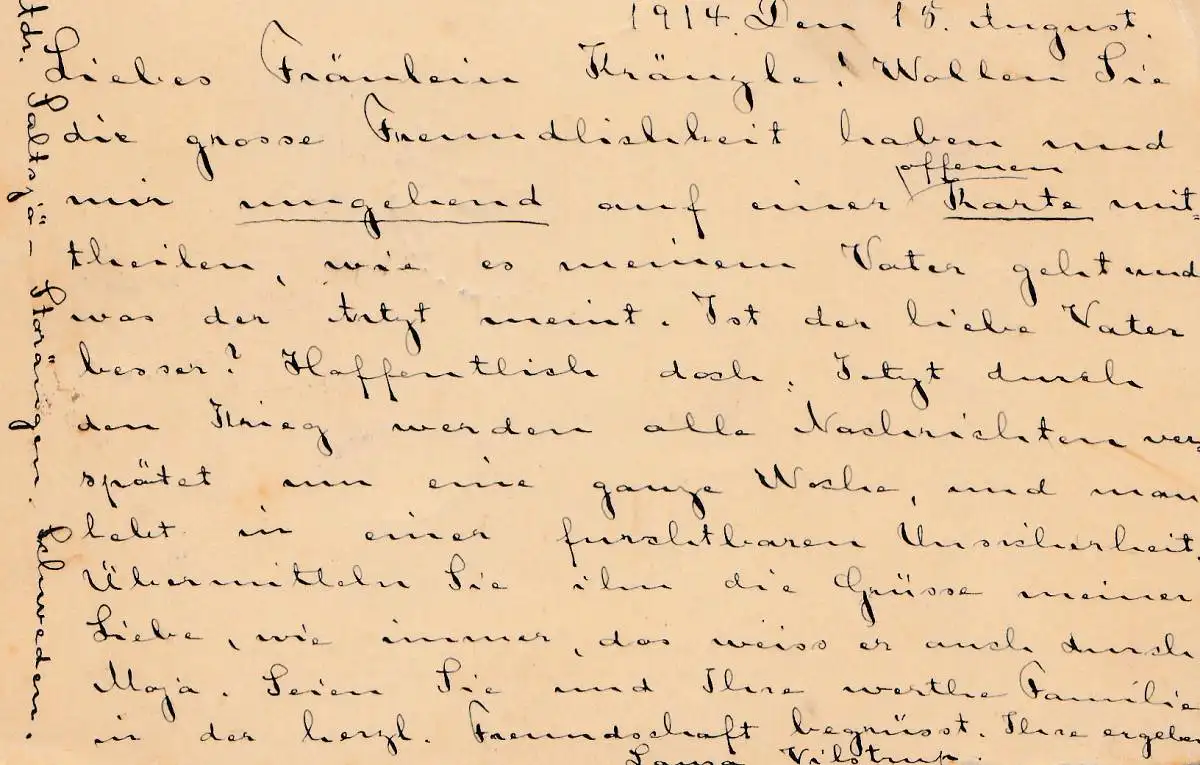 1914. Den 15. August.
Liebes Fräulein Kränzle! Wollen Sie
die grosse Freundlichkeit haben und
mir umgehend auf einer offenen Karte mit-
theilen, wie es meinem Vater geht und
was der Artzt meint. Ist der liebe Vater
besser? Hoffentlich doch. Jetzt durch
den Krieg werden alle Nachrichten ver-
spätet um eine ganze Woche, und man
lebt in einer furchtbaren Unsicherheit.
Übermitteln Sie ihm die Grüsse meiner
Liebe, wie immer, das weiss er auch durch
Maja. Seien Sie und Ihre werthe Familie
in der herzl. Freundschaft begrüsst. Ihre ergeben
Vilstrup.
Adr. Saltsjö-Storängen. Schweden.